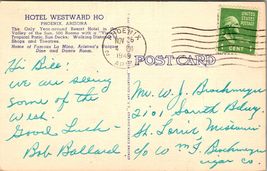 HOTEL WESTWARD HO
PHOENIX, ARIZONA
The Only Year-around Resort Hotel in
Valley of the Sun. 500 Rooms with
Tropical Patio, Sun Decks. Walking Dist
Shops and Theatres.
Home of Famous La Mina, Arizona's
Dine and Dance Room.
PHOENIX
NOV
1949
ARIZ
1 CENT
POST CARD
Hi Bill:
We are seeing
some of the
West.
Good Luck.
Bob Ballard
Mr. W. J.
2101 South Bdwy.
St. Louis Missouri
c/o W m F.